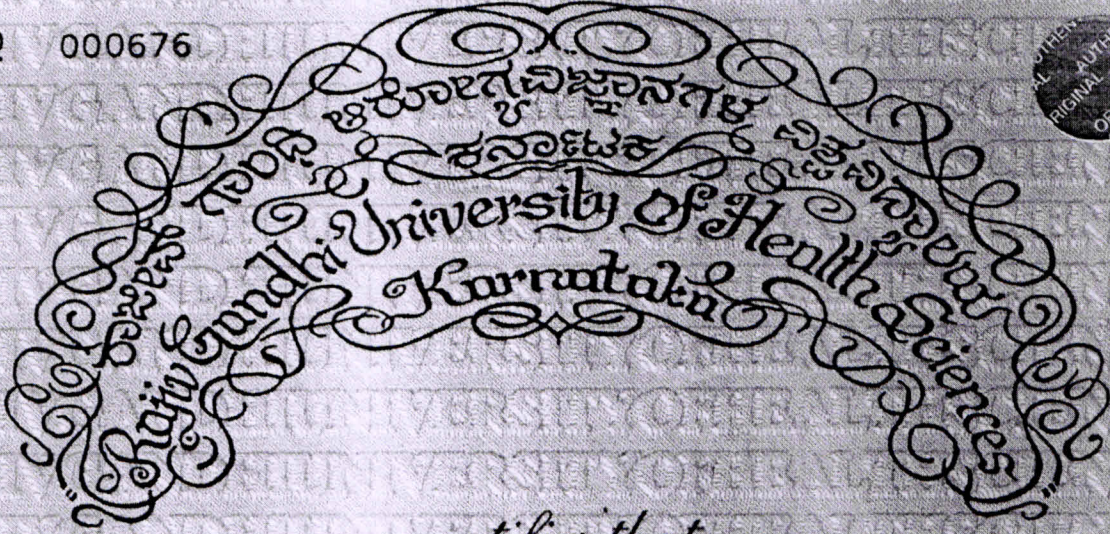 000676
ರಾಜೀವ್ ಗಾಂಧಿ ಆರೋಗ್ಯ ವಿಜ್ಞಾನಗಳ ವಿಶ್ವವಿದ್ಯಾಲಯ
ಕರ್ನಾಟಕ
Rajiv Gandhi University of Health Sciences
Karnataka